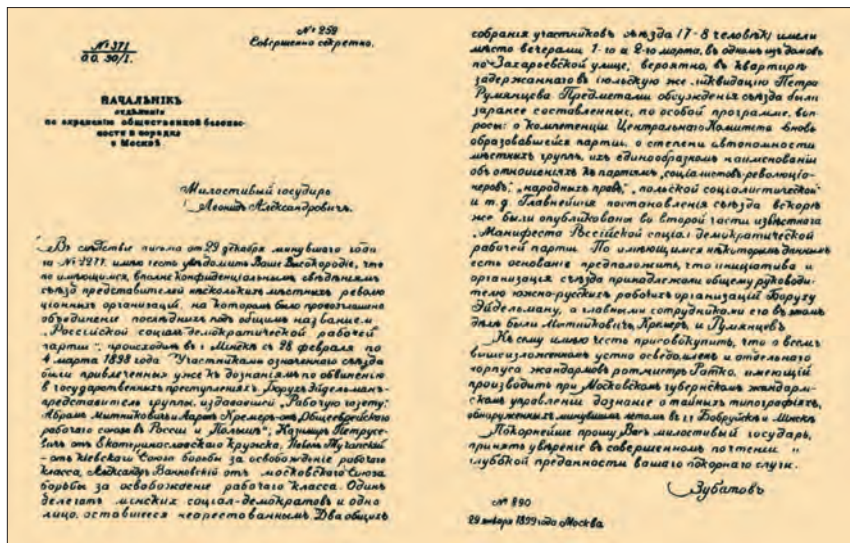 № 371
О.О. 30/1.
№ 259
Совершенно секретно.
НАЧАЛЬНИКЪ
отдѣленія
по охраненію общественной безопас-
ности и порядка
в Москвѣ
Милостивый государь
Леонидъ Александровичъ.
Въ следствіе письма от 29 декабря минувшаго года
за № 2277. имѣю честь увѣдомить Ваше Высокородіе, что
по имѣющимся, вполнѣ конфиденціальнымъ свѣдѣніямъ
съѣзд представителей нѣсколькихъ мѣстныхъ револю
ціонныхъ организацій, на которомъ было провозглашено
объединение послѣднихъ под общимъ названіем
„Российской социал-демократической рабочей
партии", происходилъ въ г. Минскѣ съ 28 февраля по
4 марта 1898 года. Участниками означеннаго съѣзда
были привлеченныя уже къ дознаніямъ по обвиненію
в государственныхъ преступленіяхъ, Борухъ Эйдельманъ-
представитель группы, издававшей „Рабочую газету;
Абрамъ Мутниковичъ и Ааронъ Кремеръ-отъ „Общееврейскаго
рабочаго союза въ России и Польшѣ"; Казимиръ Петрусе-
вичъ от Екатеринославскаго кружка, Павелъ Тучапский
- отъ Кіевскаго Союза борьбы за освобожденіе рабочаго
класса, Александръ Ванновский от московскаго Союза
борьбы за освобожденіе рабочаго класса. Одинъ
делегатъ минских социал-демократовъ и одно
лицо, оставшееся неарестованнымъ. Два общихъ
собранія участниковъ съѣзда (7-8 человѣкъ) имѣли
мѣсто вечерами 1-го и 2-го марта, въ одномъ из домовъ
по Захарьевской улице, вероятно, въ квартирѣ
задержаннаго въ іюльскую же ликвидацію Петра
Румянцева. Предметами обсужденія съѣзда были
заранее составленные, по особой программе, воп
росы: о компетенціи Центральнаго Комитета вновь
образовавшейся партіи, о степени автономности
мѣстныхъ группъ, ихъ единообразномъ наименованіи
об отношеніяхъ къ партіямъ „соціалистовъ-революціо-
неровъ", „народныхъ правъ", „польской соціалистической"
и т.д. Главнейшія постановленія съѣзда вскорѣ
же были опубликованы во второй части извѣстнаго
„Манифеста Россійской соціал-демократической
рабочей партіи. По имѣющимся нѣкоторымъ даннымъ
есть основаніе предположить, что инициатива и
организація съѣзда принадлежали общему руководи-
телю южно-русскихъ рабочихъ организацій Боруху
Эйдельману, а главными сотрудниками его в этомъ
дѣлѣ были Мутниковичъ, Кремеръ, и Румянцевъ
Къ сему имѣю честь присовокупить, что о всемъ
вышеизложенномъ устно осведомленъ и отдельнаго
корпуса жандармовъ ротмистръ Ротко, имѣющій
производить при Московскомъ губернскомъ жандарм-
скомъ управленіи дознание о тайныхъ типографіяхъ,
обнаруженныхъ минувшимъ летомъ въ гг Бобруйскѣ и Минскѣ
Покорнейше прошу Васъ милостивый государь,
принять увѣреніе въ совершенномъ почтеніи и
глубокой преданности вашего покорнаго слуги.
Зубатовъ
№ 890
29 января 1899 года Москва